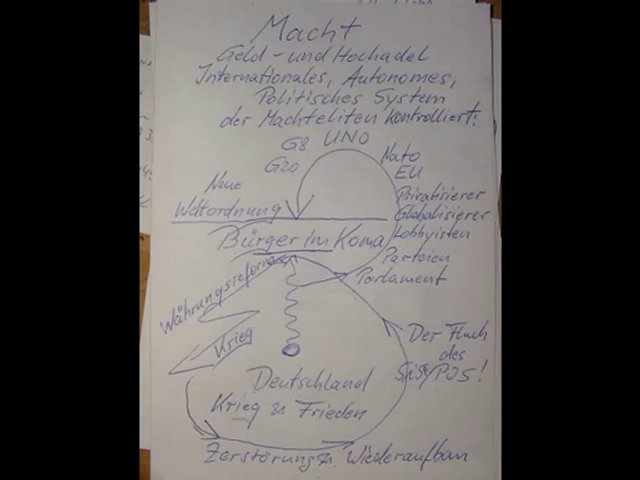 Macht
Geld - und Hochadel
Internationales, Autonomes,
Politisches System
der Machteliten Kontrolliert:
G8 UNO
G20
Nato
EU
Privatisierer
Globalisierer
Lobbyisten
Parteien
Parlament
Neue
Weltordnung
Bürger im Koma
Währungsreform
Krieg
Der Fluch
des
SiSYPOS!
Deutschland
Krieg & Frieden
Zerstörung & Wiederaufbau